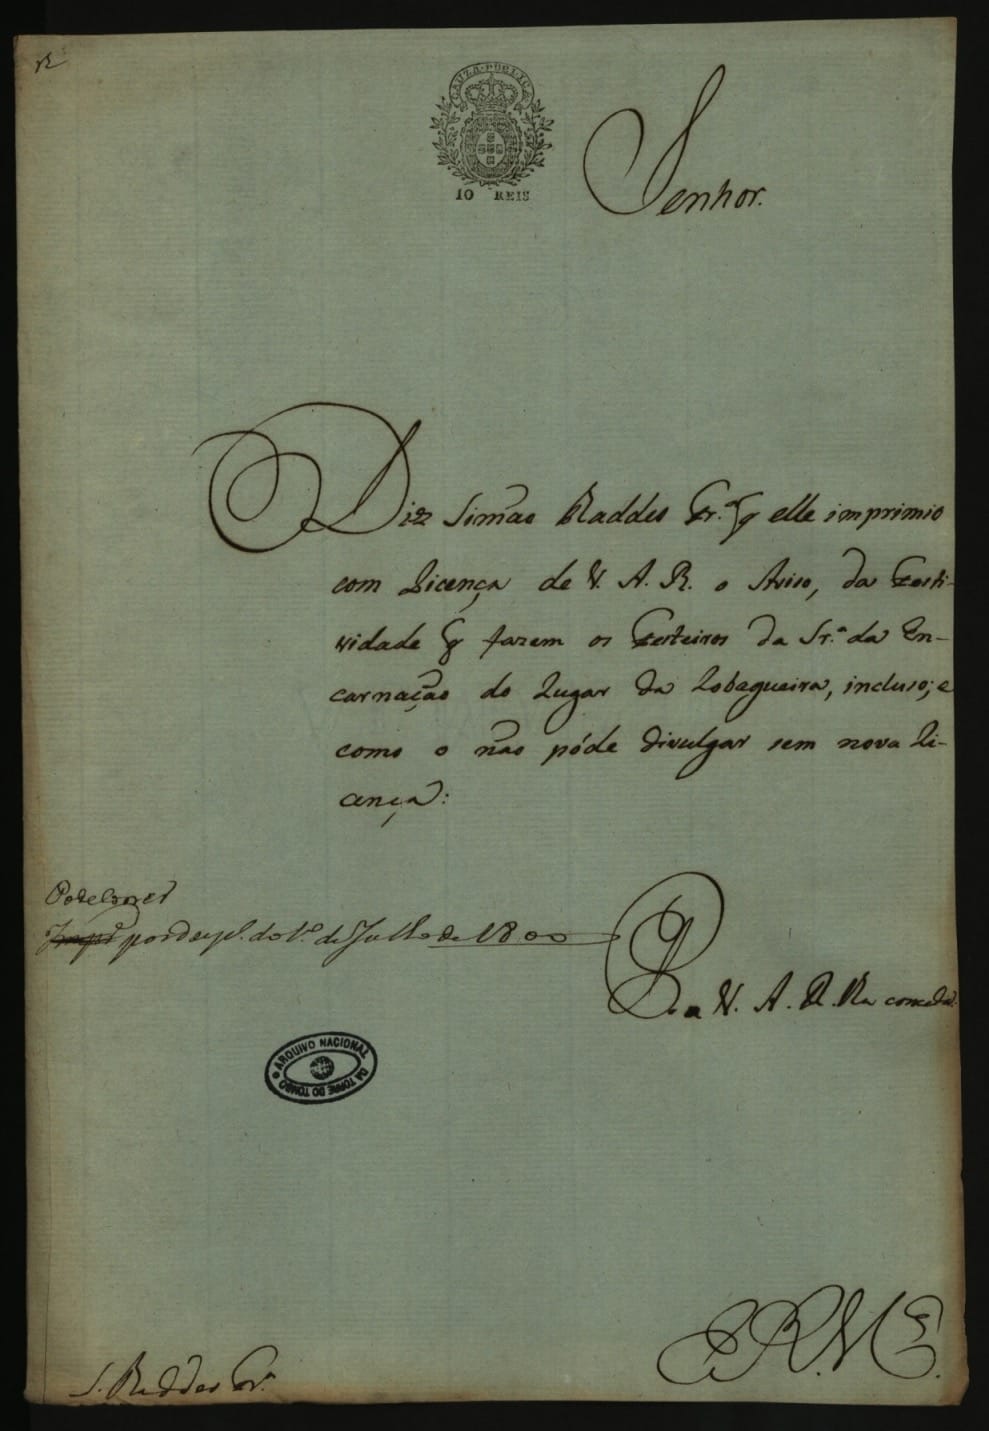 CAUZA PUBLICA
10 REIS
Senhor.
Diz Simão Raddeo Fr.ª q elle imprimio
com Licença de V. A. R. o Aviso, da Festi-
vidade q fazem os Festeiros da Sr.ª da En-
carnação do Lugar da Lobagueira, incluso; e
como o não póde divulgar sem nova Li-
cença:
Pode correr
por desp. do 1.º de Julho de 1800
P. a V. A. R. lha conceda.
ARQUIVO NACIONAL
DA TORRE DO TOMBO
E. R. M.
S. Raddeo Fr.ª